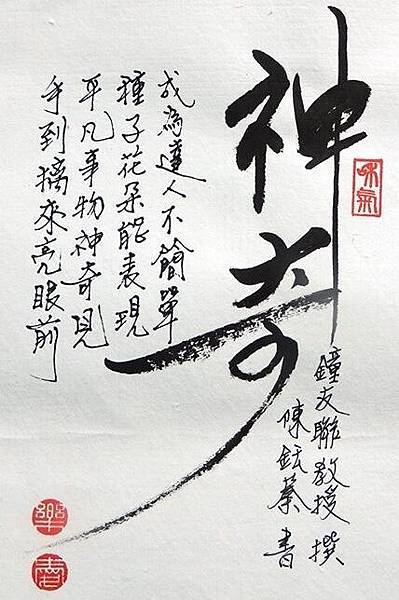 神奇
和氣
成為達人不簡單
種子花朵能表現
平凡事物神奇見
手到擒來亮眼前
鐘友聯教授 撰
陳鈺蓁 書